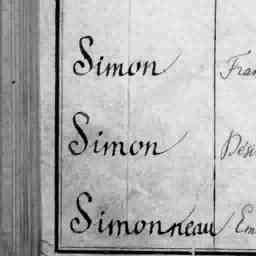 Simon Fran
Simon Dési
Simonneau Em